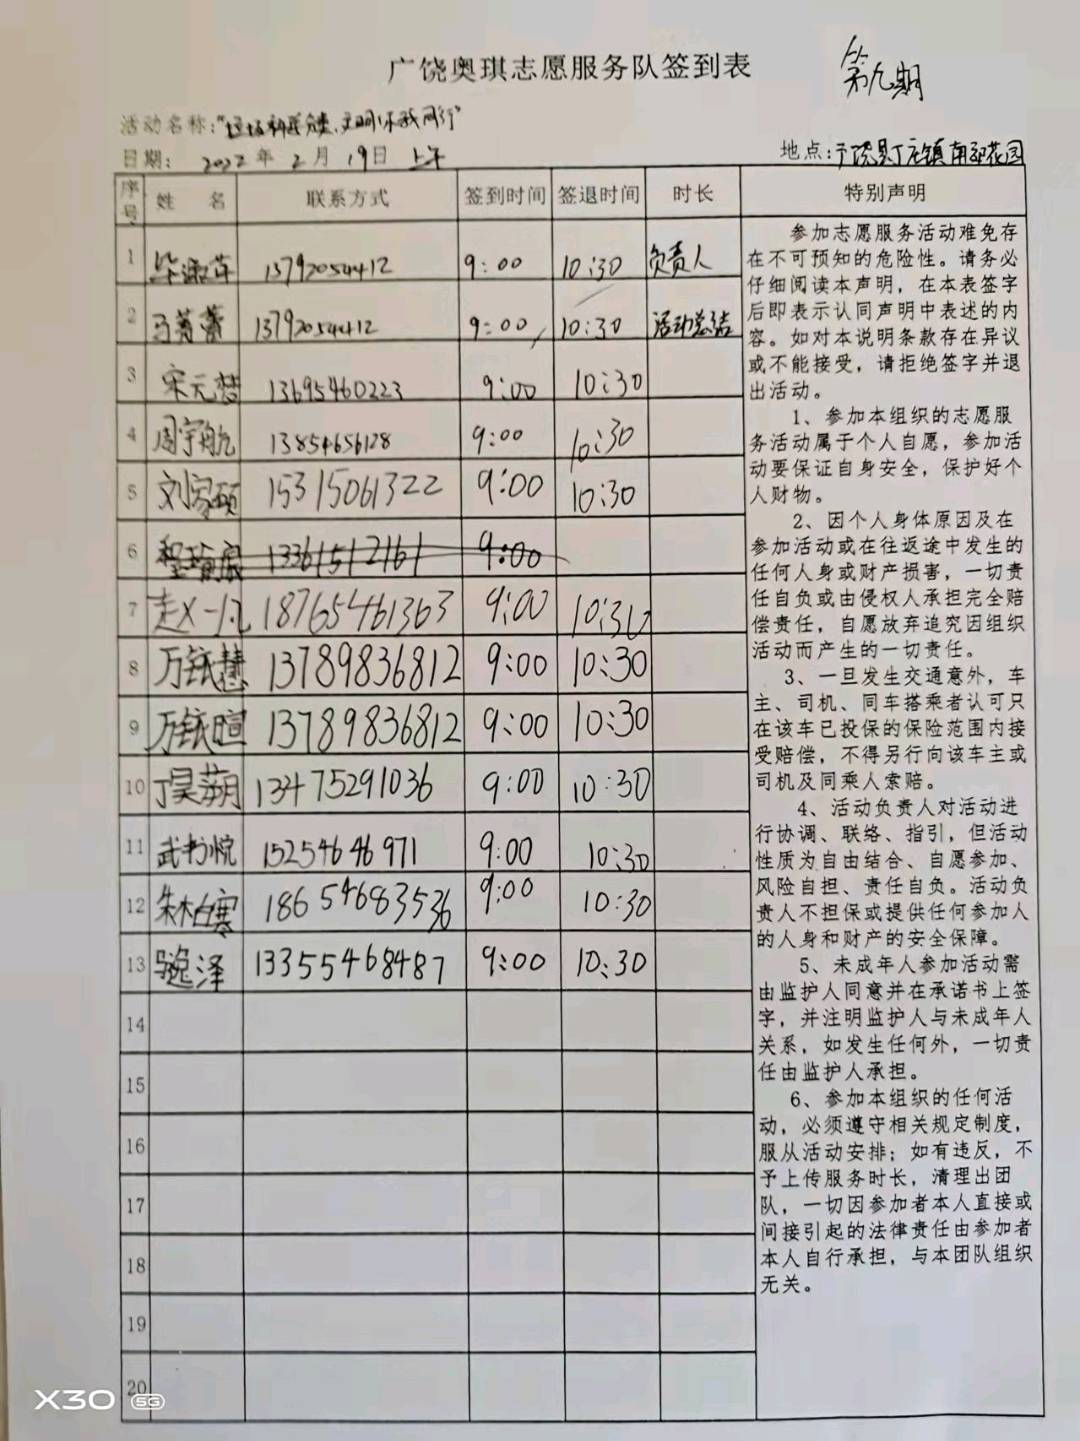 广饶奥琪志愿服务队签到表
第九期
活动名称："垃圾科学分类、文明你我同行"
日期： 2022年2月19日 上午
地点：广饶县丁庄镇南部花园
序号 姓 名 联系方式 签到时间 签退时间 时长 特别声明
1 13792054412 9:00 10:30 负责人
2 13792054412 9:00 10:30 活动总结
3 宋元梦 13695460223 9:00 10:30
4 周宇航 13854656128 9:00 10:30
5 刘家硕 15315061322 9:00 10:30
6 13361512161 9:00
7 赵一凡 18765461363 9:00 10:30
8 万铱慧 13789836812 9:00 10:30
9 万铱暄 13789836812 9:00 10:30
10 丁昊朔 13475291036 9:00 10:30
11 武书悦 15254646971 9:00 10:30
12 18654683536 9:00 10:30
13 骆逸泽 13355468487 9:00 10:30
14
15
16
17
18
19
20
参加志愿服务活动难免存
在不可预知的危险性。请务必
仔细阅读本声明，在本表签字
后即表示认同声明中表述的内
容。如对本说明条款存在异议
或不能接受，请拒绝签字并退
出活动。
1、参加本组织的志愿服
务活动属于个人自愿，参加活
动要保证自身安全，保护好个
人财物。
2、因个人身体原因及在
参加活动或在往返途中发生的
任何人身或财产损害，一切责
任自负或由侵权人承担完全赔
偿责任，自愿放弃追究因组织
活动而产生的一切责任。
3、一旦发生交通意外，车
主、司机、同车搭乘者认可只
在该车已投保的保险范围内接
受赔偿，不得另行向该车主或
司机及同乘人索赔。
4、活动负责人对活动进
行协调、联络、指引，但活动
性质为自由结合、自愿参加、
风险自担、责任自负。活动负
责人不担保或提供任何参加人
的人身和财产的安全保障。
5、未成年人参加活动需
由监护人同意并在承诺书上签
字，并注明监护人与未成年人
关系，如发生任何外，一切责
任由监护人承担。
6、参加本组织的任何活
动，必须遵守相关规定制度，
服从活动安排；如有违反，不
予上传服务时长，清理出团
队，一切因参加者本人直接或
间接引起的法律责任由参加者
本人自行承担，与本团队组织
无关。
X30 5G